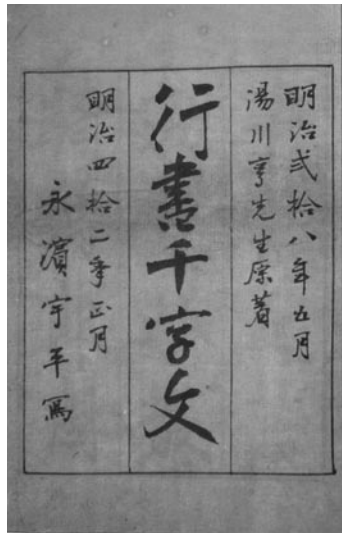 明治弐拾八年五月
湯川亨先生原著
行書千字文
明治四拾二年正月
永濱宇平寫